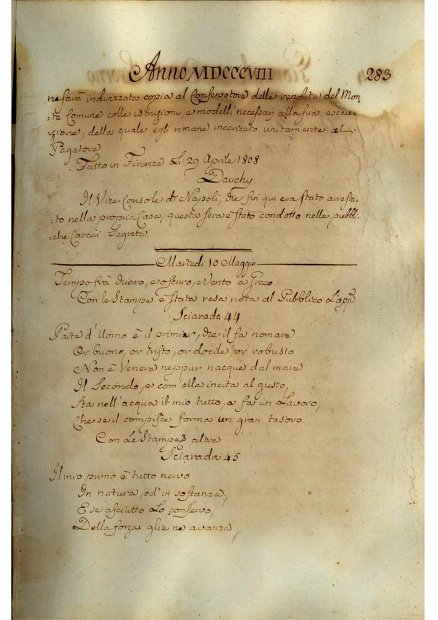 Anno MDCCCVIII
283
ne sarà indirizzata copia al Conservatore delle rendite del Mon-
te Comune colle istruzioni, e modelli necessarj alla sua esecu-
zione, della quale egli rimane incaricato unitamente al
Pagatore
Fatto in Firenze li 29 Aprile 1808
Dauchy
Il Vice-Console di Napoli, che fin qui era stato arresta-
to nella propria Casa, questa sera è stato condotto nelle pubbli-
che Carceri Segrete.
Martedì 10 Maggio
Tempo frà duero, e oscuro, e vento a Greco
Con le Stampe è stata resa nota al Pubblico l'app.
Sciarada 44
Parte d'Uomo è il primier, che il fa nomare
Or buono, or tristo, or docile or robusto
Non è Venere neppur nacque dal mare
Il Secondo, e com ella incita al gusto,
Sta nell'acqua il mio tutto, e fa un Lavoro,
Che se il compisce forma un gran tesoro.
Con Le Stampe altra
Sciarada 45
Il mio primo è tutto nervo
In natura, ed in sostanza,
E se asciutto Lo conservo,
Della forza gli ne avanza,